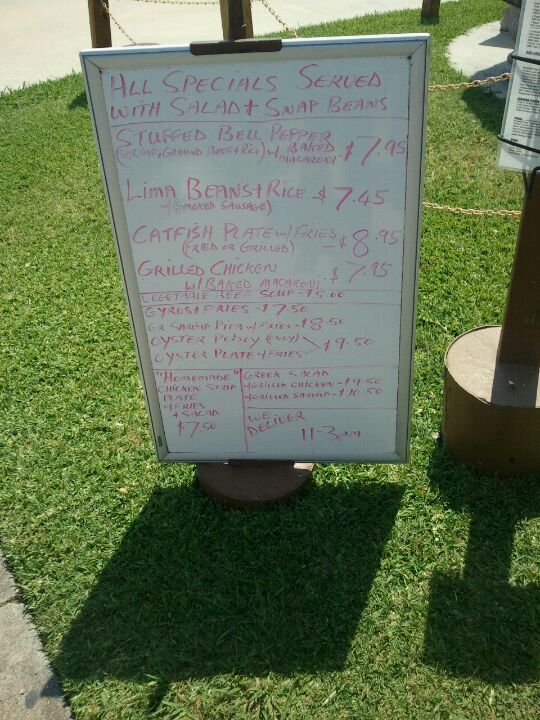 ALL SPECIALS SERVED
WITH SALAD + SNAP BEANS
STUFFED BELL PEPPER
(SHRIMP, GROUND BEEF + RICE) W/ BAKED MACARONI $7.95
LIMA BEANS + RICE $7.45
W/ (SMOKED SAUSAGE)
CATFISH PLATE W/ FRIES
(FRIED OR GRILLED) - $8.95
GRILLED CHICKEN
W/ BAKED MACARONI. $7.95
VEGETABLE BEEF SOUP - $5.00
GYROS + FRIES - $7.50
GR SHRIMP PITA W/ FRIES - $8.50
OYSTER POBOY (ONLY)
OYSTER PLATE + FRIES $9.50
"HOMEMADE"
CHICKEN STRIP
PLATE
+ FRIES
+ SALAD
$7.50
GREEK SALAD
+ GRILLED CHICKEN - $9.50
+ GRILLED SHRIMP - $10.50
WE
DELIVER
11-3pm